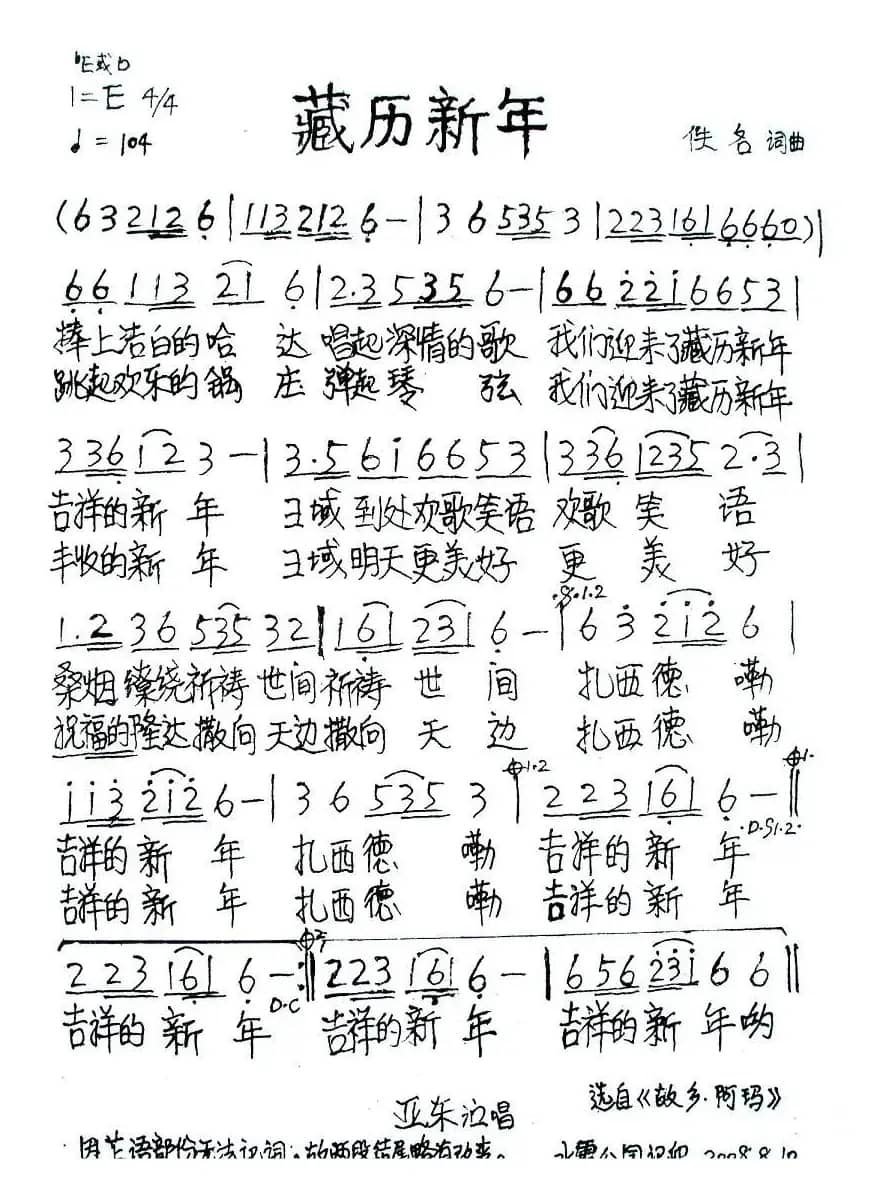 ♭E或D
1=E 4/4
♩=104
藏历新年
佚名 词曲
(6 3 2126 | 113 212 6 - | 3 6 535 3 | 223 161 6660) |
66 113 21 6 | 2.3 5 35 6 - | 66 221 66 53 |
捧上洁白的哈 达 唱起深情的歌 我们迎来了藏历新年
跳起欢乐的锅 庄 弹起琴 弦 我们迎来了藏历新年
336 12 3 - | 3.5 61 66 53 | 336 1235 2.3 |
吉祥的新 年 王域到处欢歌笑语 欢歌 笑 语
丰收的新 年 王域明天更美好 更 美 好
.S.1.2
1.2 36 535 32 | 161 231 6 - | 6 3 212 6 |
桑烟缭绕祈祷世间祈祷 世 间 扎西德 嘞
祝福的隆达撒向天边撒向 天 边 扎西德 嘞
113 212 6 - | 3 6 535 3 | 223 161 6 - ||
吉祥的新 年 扎西德 嘞 吉祥的新 年
吉祥的新 年 扎西德 嘞 吉祥的新 年
223 161 6 - :|| 223 161 6 - | 656 231 6 6 ||
D.C
吉祥的新 年 吉祥的新 年 吉祥的新 年哟
亚东演唱
选自《故乡·阿玛》
2008.8.10